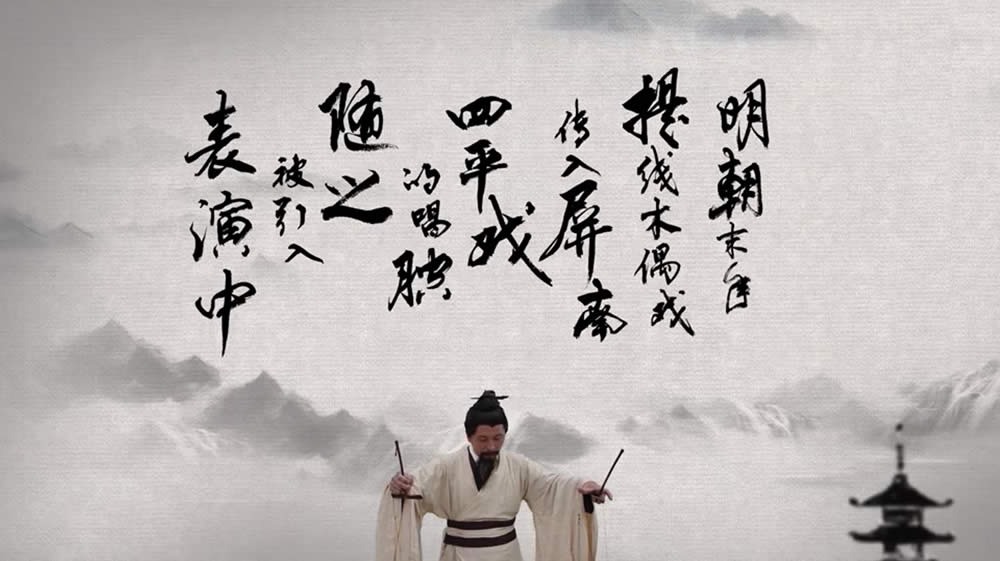 明朝末年
提线木偶戏
传入屏南
四平戏
的唱腔
随之
被引入
表演中